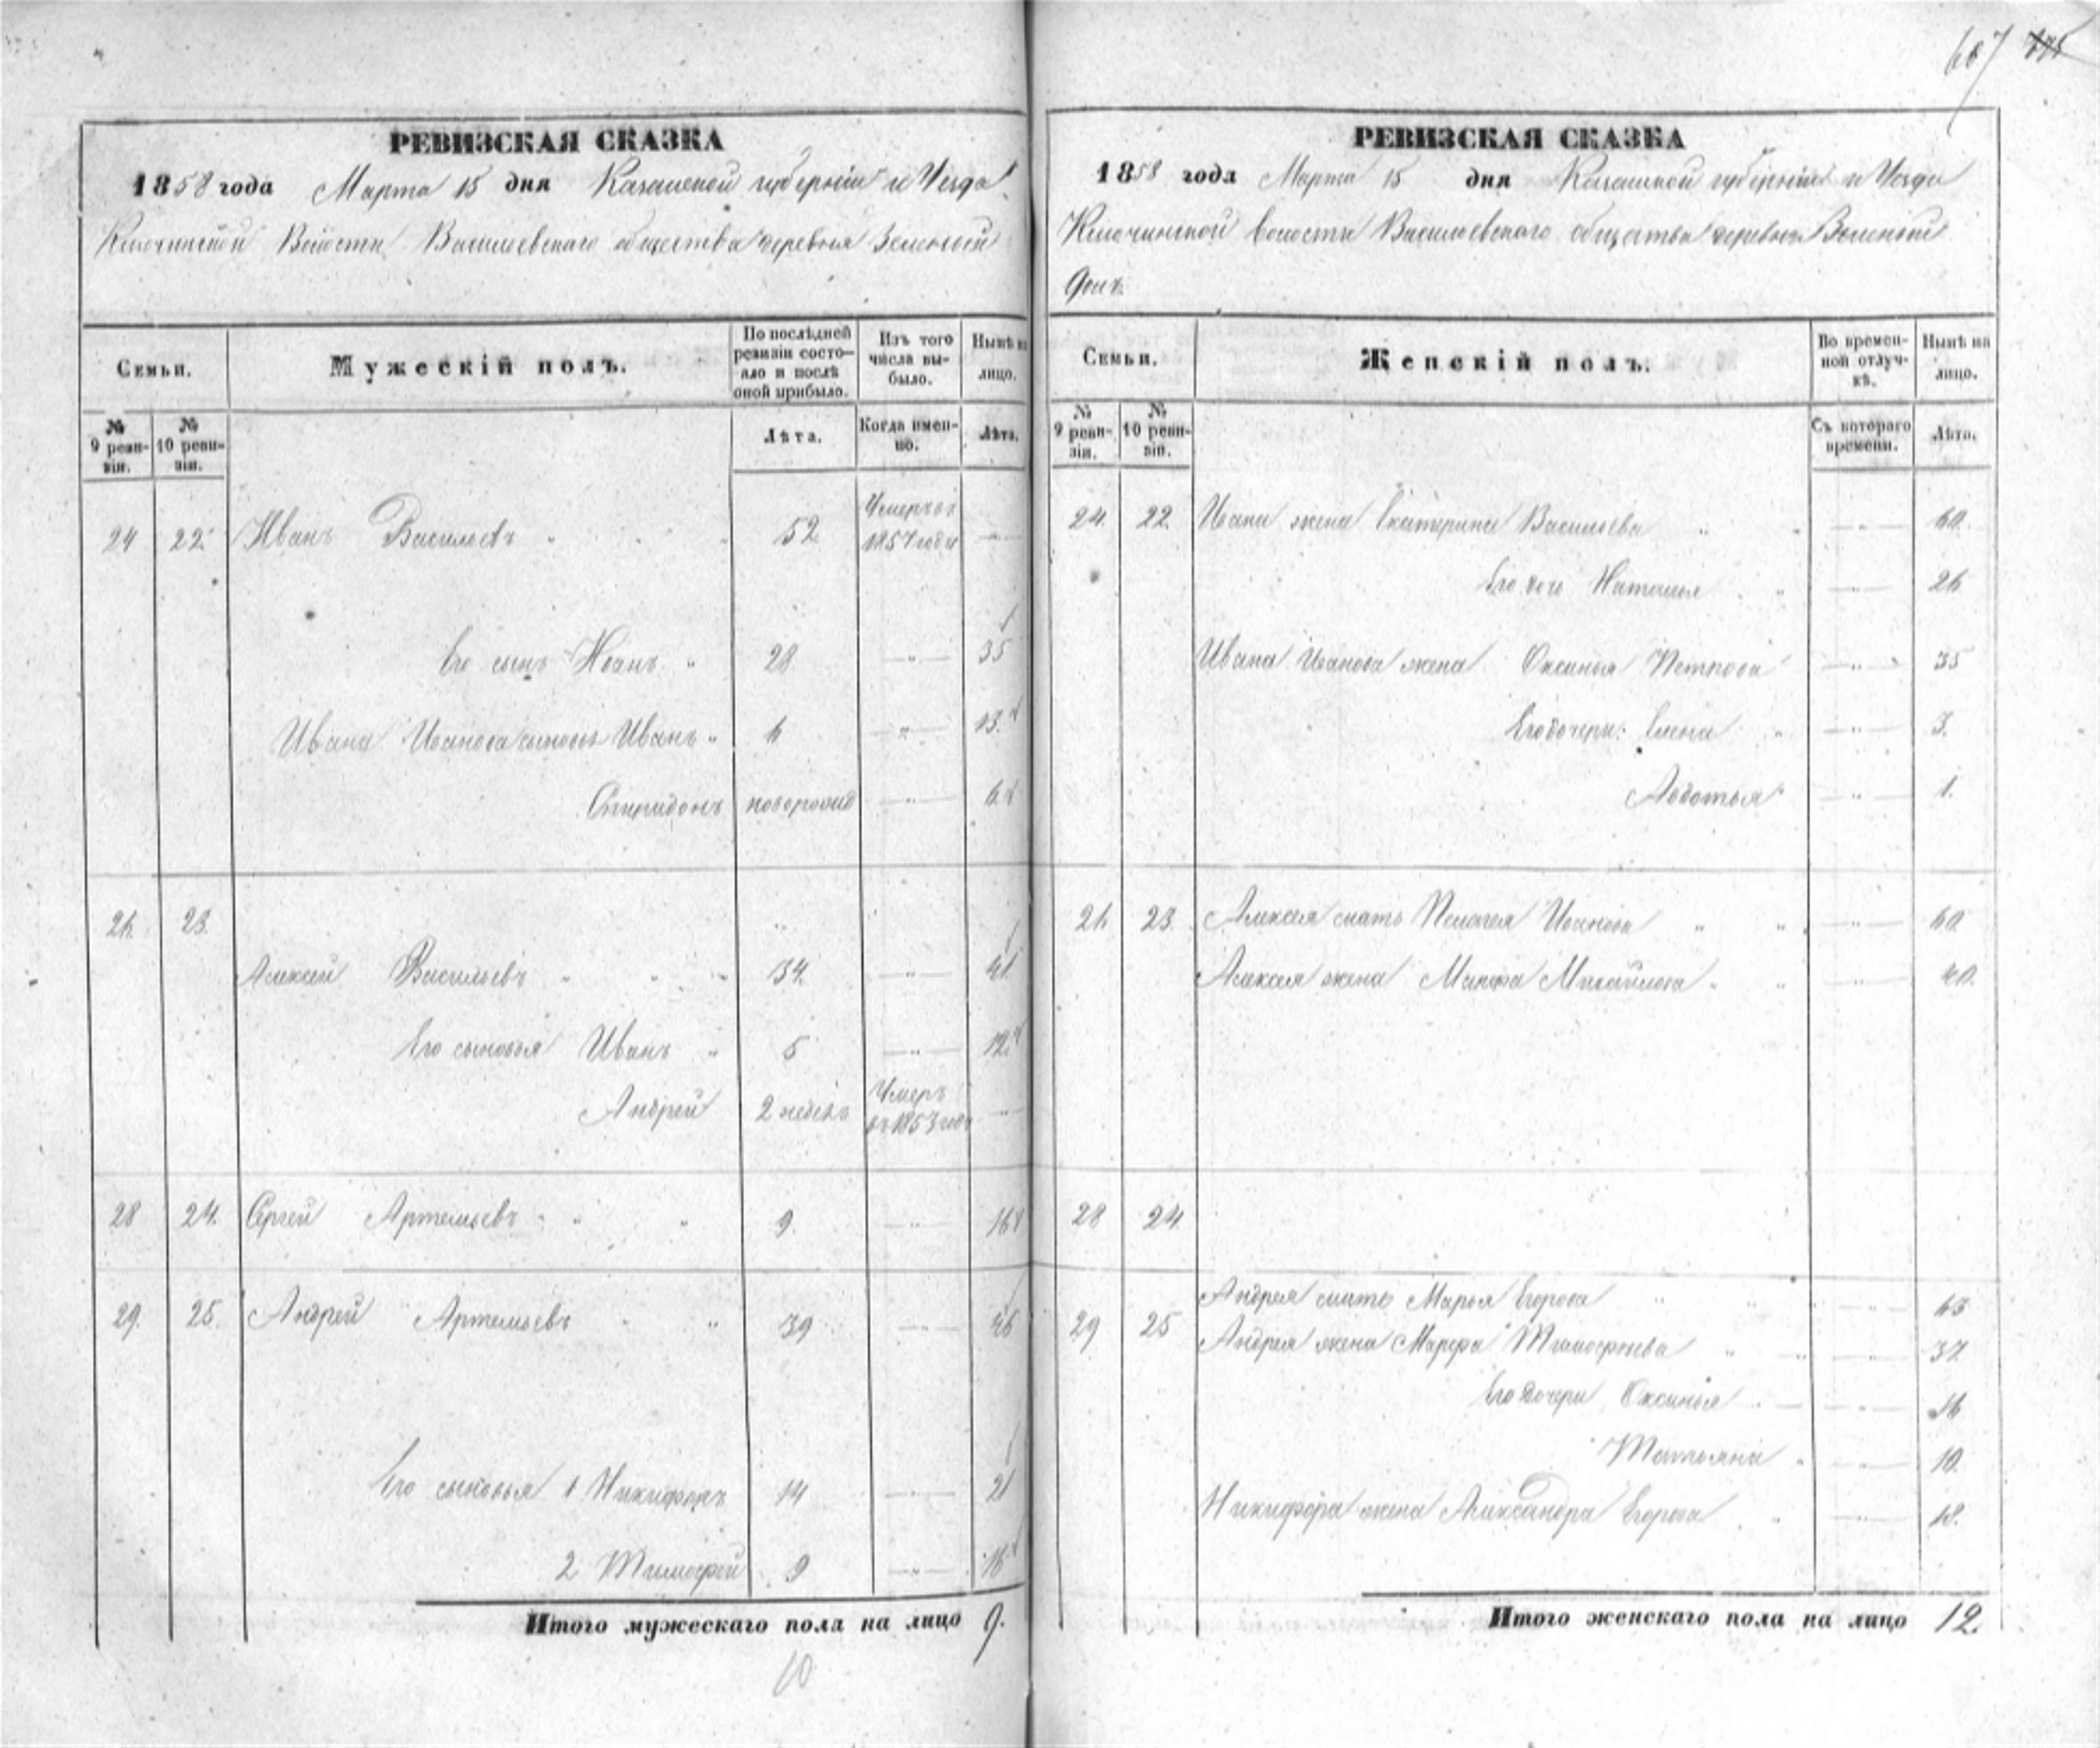 667 775
РЕВИЗСКАЯ СКАЗКА
1858 года Марта 15 дня Казанской губерніи и Уезда
Ключинской Волости Васильевскаго общества деревня Зеленой
Семьи. Мужескій полъ. По послѣдней ревизіи состояло и послѣ оной прибыло. Изъ того числа выбыло. Нынѣ на лицо.
№ 9 ревизіи. № 10 ревизіи. Лѣта. Когда именно. Лѣта.
24 22. Иванъ Васильевъ 52 Умеръ въ 1857 годе
Его сынъ Иванъ 28 35
Ивана Иванова сыновья Иванъ 6 13.
Спиридонъ новорожд 6
26. 23.
Алексей Васильевъ 34. 41
Его сыновья Иванъ 5 12.
Андрей 2 недель Умеръ въ 1853 годе
28 24. Сергей Артемьевъ 9. 16
29. 25. Андрей Артемьевъ 39 46
Его сыновья 1 Никифоръ 14 21
2 Тимофей 9 16
Итого мужескаго пола на лицо 9.
10
РЕВИЗСКАЯ СКАЗКА
1858 года Марта 15 дня Казанской губерніи и Уезда
Ключинской волости Васильевскаго общества деревня Зеленой
Долъ.
Семьи. Женскій полъ. Во временной отлучкѣ. Нынѣ на лицо.
№ 9 ревизіи. № 10 ревизіи. Съ котораго времени. Лѣта.
24. 22. Ивана жена Екатерина Васильева 60.
Его дочь Наталья 26
Ивана Иванова жена Оксинья Петрова 35
Его дочери: Елена 3.
Авдотья 1.
26 23. Алексея мать Пелагея Иванова 60
Алексея жена Марфа Михайлова 40.
28 24.
29 25 Андрея мать Марья Егорова 63
Андрея жена Марфа Тимофеева 37
Его дочери Оксинья 16
Татьяна 10.
Никифора жена Александра Егорова 18.
Итого женскаго пола на лицо 12.